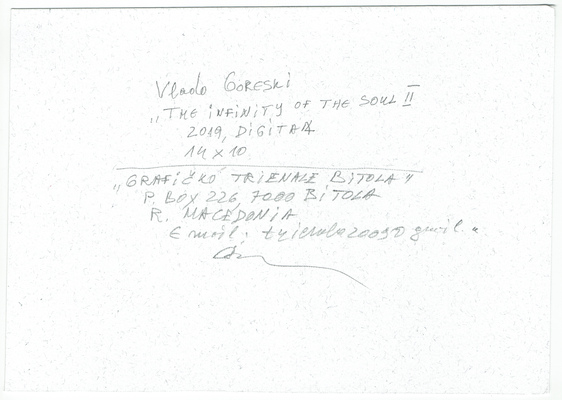 Vlado GORESKI
„THE INFINITY OF THE SOUL II
2019, DIGITAL
14 x 10
„GRAFIČKO TRIENALE BITOLA"
P. BOX 226, 7000 BITOLA
R. MACEDONIA
E mail: